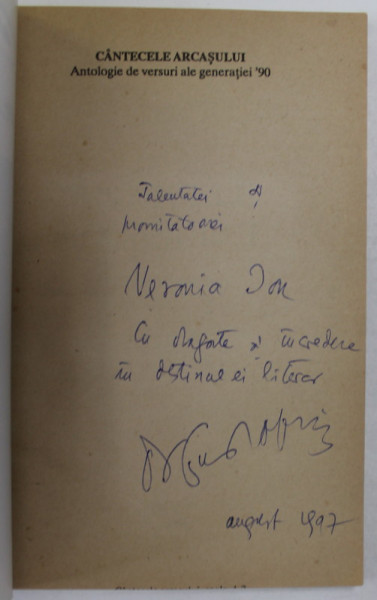 CÂNTECELE ARCAȘULUI
Antologie de versuri ale generației '90
Talentatei și
promițătoarei
Veronia Ion
Cu dragoste și încredere
în destinul ei literar
august 1997